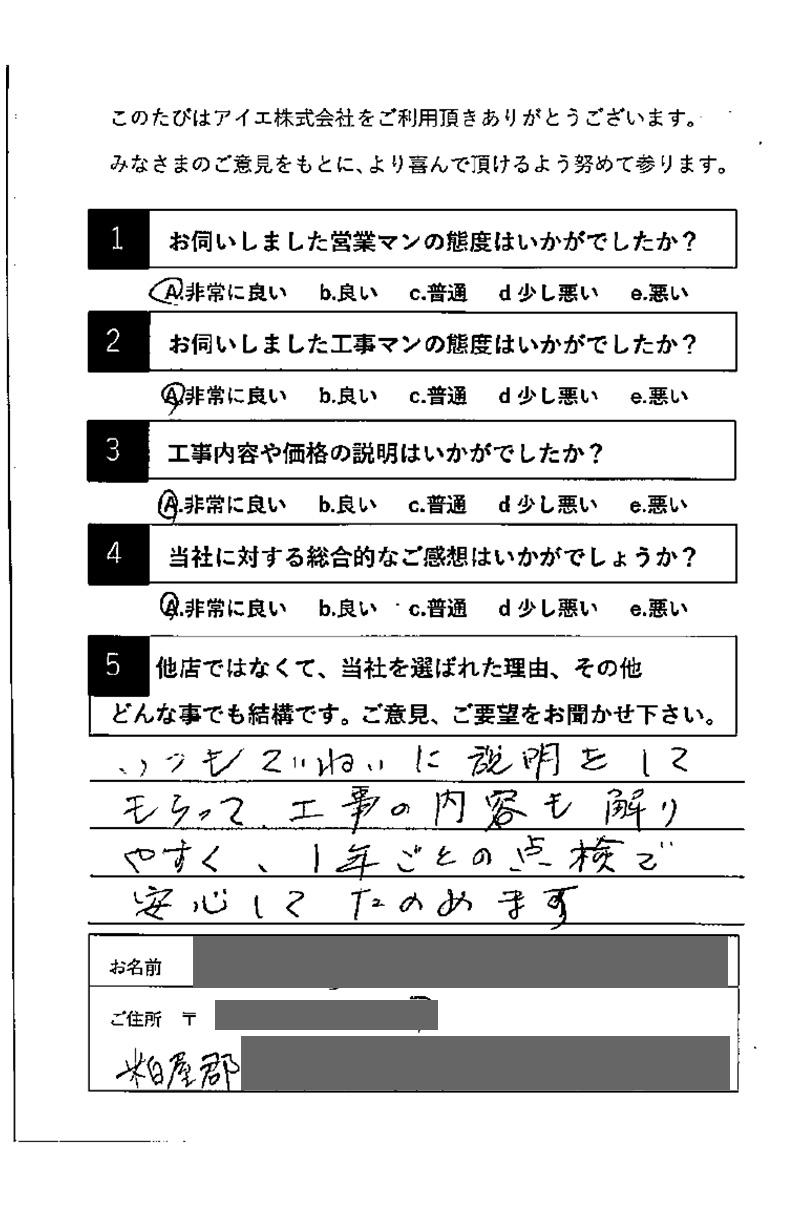 このたびはアイエ株式会社をご利用頂きありがとうございます。
みなさまのご意見をもとに、より喜んで頂けるよう努めて参ります。
1 お伺いしました営業マンの態度はいかがでしたか？
A.非常に良い b.良い c.普通 d 少し悪い e.悪い
2 お伺いしました工事マンの態度はいかがでしたか？
A.非常に良い b.良い c.普通 d 少し悪い e.悪い
3 工事内容や価格の説明はいかがでしたか？
A.非常に良い b.良い c.普通 d 少し悪い e.悪い
4 当社に対する総合的なご感想はいかがでしょうか？
A.非常に良い b.良い c.普通 d 少し悪い e.悪い
5 他店ではなくて、当社を選ばれた理由、その他
どんな事でも結構です。ご意見、ご要望をお聞かせ下さい。
いつもていねいに説明をして
もらって、工事の内容も解り
やすく、1年ごとの点検で
安心してたのめます
お名前
ご住所 〒
粕屋郡